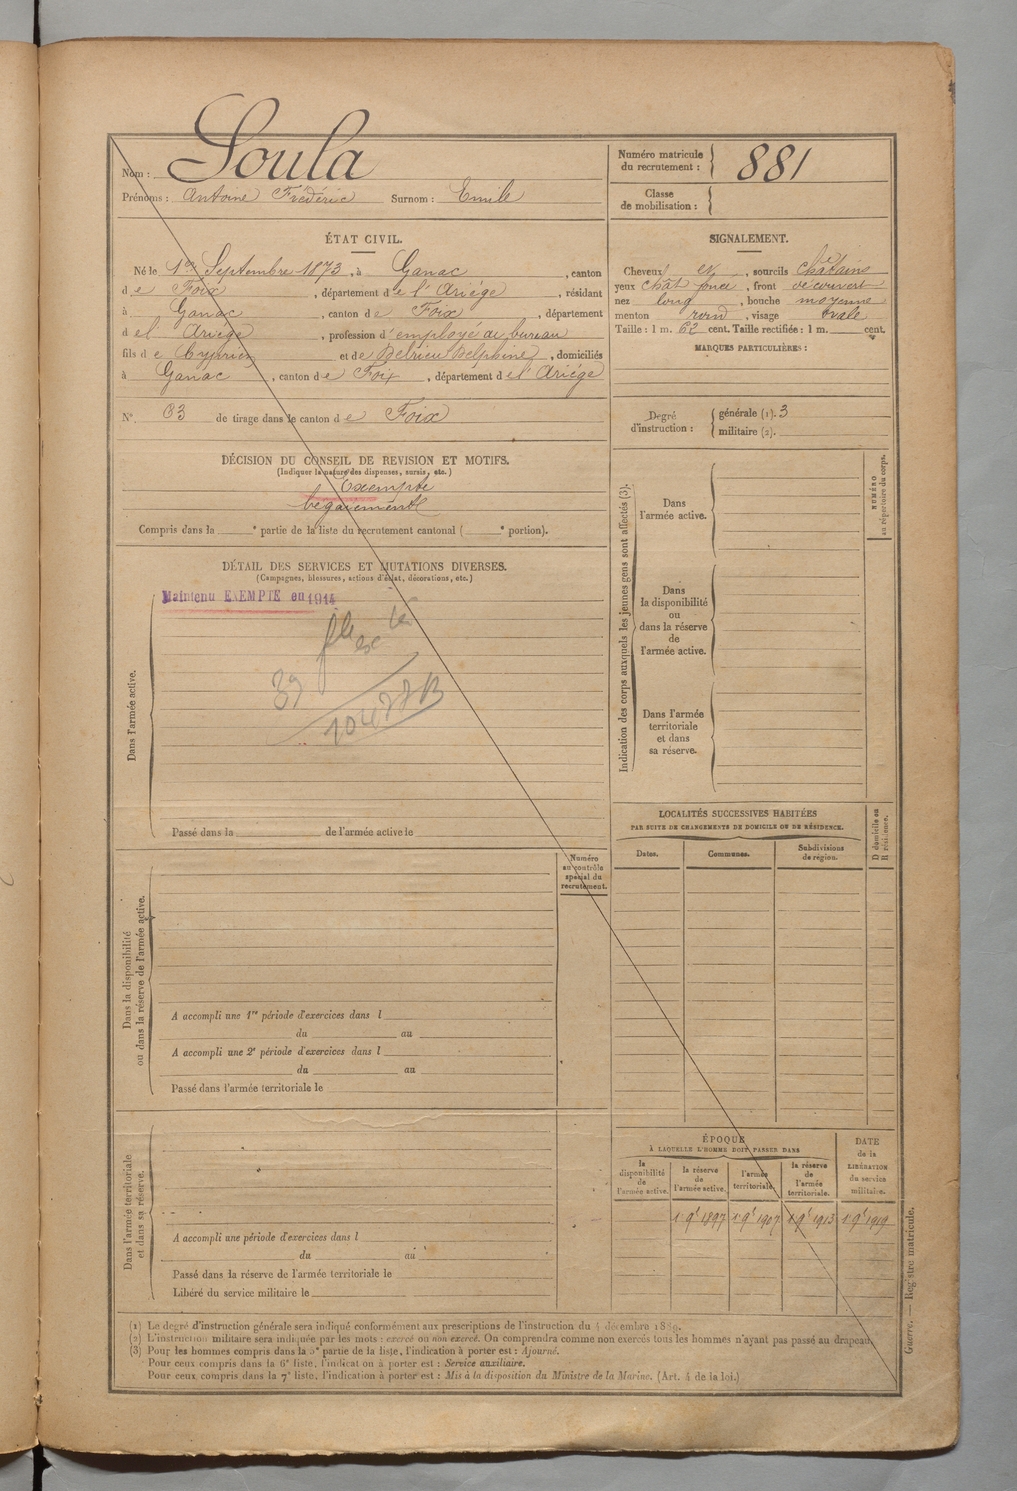 Nom : Soula
Prénoms : Antoine Frédéric Surnom : Emile
Numéro matricule du recrutement : 881
Classe de mobilisation :
ÉTAT CIVIL.
Né le 1er Septembre 1873, à Ganac, canton
de Foix, département de l'Ariége, résidant
à Ganac, canton de Foix, département
de l'Ariége, profession d'employé au bureau
fils de Cyprien et de Delrieu Delphine, domiciliés
à Ganac, canton de Foix, département de l'Ariége
N° 63 de tirage dans le canton de Foix
SIGNALEMENT.
Cheveux et, sourcils châtains
yeux chât fonce, front découvert
nez long, bouche moyenne
menton rond, visage ovale
Taille : 1 m. 62 cent. Taille rectifiée : 1 m. cent.
MARQUES PARTICULIÈRES :
Degré d'instruction :
générale (1). 3
militaire (2).
DÉCISION DU CONSEIL DE REVISION ET MOTIFS.
(Indiquer la nature des dispenses, sursis, etc.)
Exempté
begaiement
Compris dans la e partie de la liste du recrutement cantonal ( e portion).
DÉTAIL DES SERVICES ET MUTATIONS DIVERSES.
(Campagnes, blessures, actions d'éclat, décorations, etc.)
Maintenu EXEMPTÉ en 1914
Dans l'armée active.
Passé dans la de l'armée active le
Indication des corps auxquels les jeunes gens sont affectés (3).
Dans l'armée active.
Dans la disponibilité ou dans la réserve de l'armée active.
Dans l'armée territoriale et dans sa réserve.
NUMÉRO au répertoire du corps.
LOCALITÉS SUCCESSIVES HABITÉES
PAR SUITE DE CHANGEMENTS DE DOMICILE OU DE RÉSIDENCE.
Dates. Communes. Subdivisions de région.
D domicile ou R résidence.
Numéro au contrôle spécial du recrutement.
Dans la disponibilité ou dans la réserve de l'armée active.
A accompli une 1re période d'exercices dans l
du au
A accompli une 2e période d'exercices dans l
du au
Passé dans l'armée territoriale le
Dans l'armée territoriale et dans sa réserve.
A accompli une période d'exercices dans l
du au
Passé dans la réserve de l'armée territoriale le
Libéré du service militaire le
ÉPOQUE
À LAQUELLE L'HOMME DOIT PASSER DANS
la disponibilité de l'armée active.
la réserve de l'armée active.
l'armée territoriale.
la réserve de l'armée territoriale.
DATE de la LIBÉRATION du service militaire.
1er 9e 1897 1er 9e 1907 1er 9e 1913 1er 9e 1919
Guerre. — Registre matricule.
(1) Le degré d'instruction générale sera indiqué conformément aux prescriptions de l'instruction du 4 décembre 1889.
(2) L'instruction militaire sera indiquée par les mots : exercé ou non exercé. On comprendra comme non exercés tous les hommes n'ayant pas passé au drapeau.
(3) Pour les hommes compris dans la 5e partie de la liste, l'indication à porter est : Ajourné.
Pour ceux compris dans la 6e liste, l'indication à porter est : Service auxiliaire.
Pour ceux compris dans la 7e liste, l'indication à porter est : Mis à la disposition du Ministre de la Marine. (Art. 4 de la loi.)